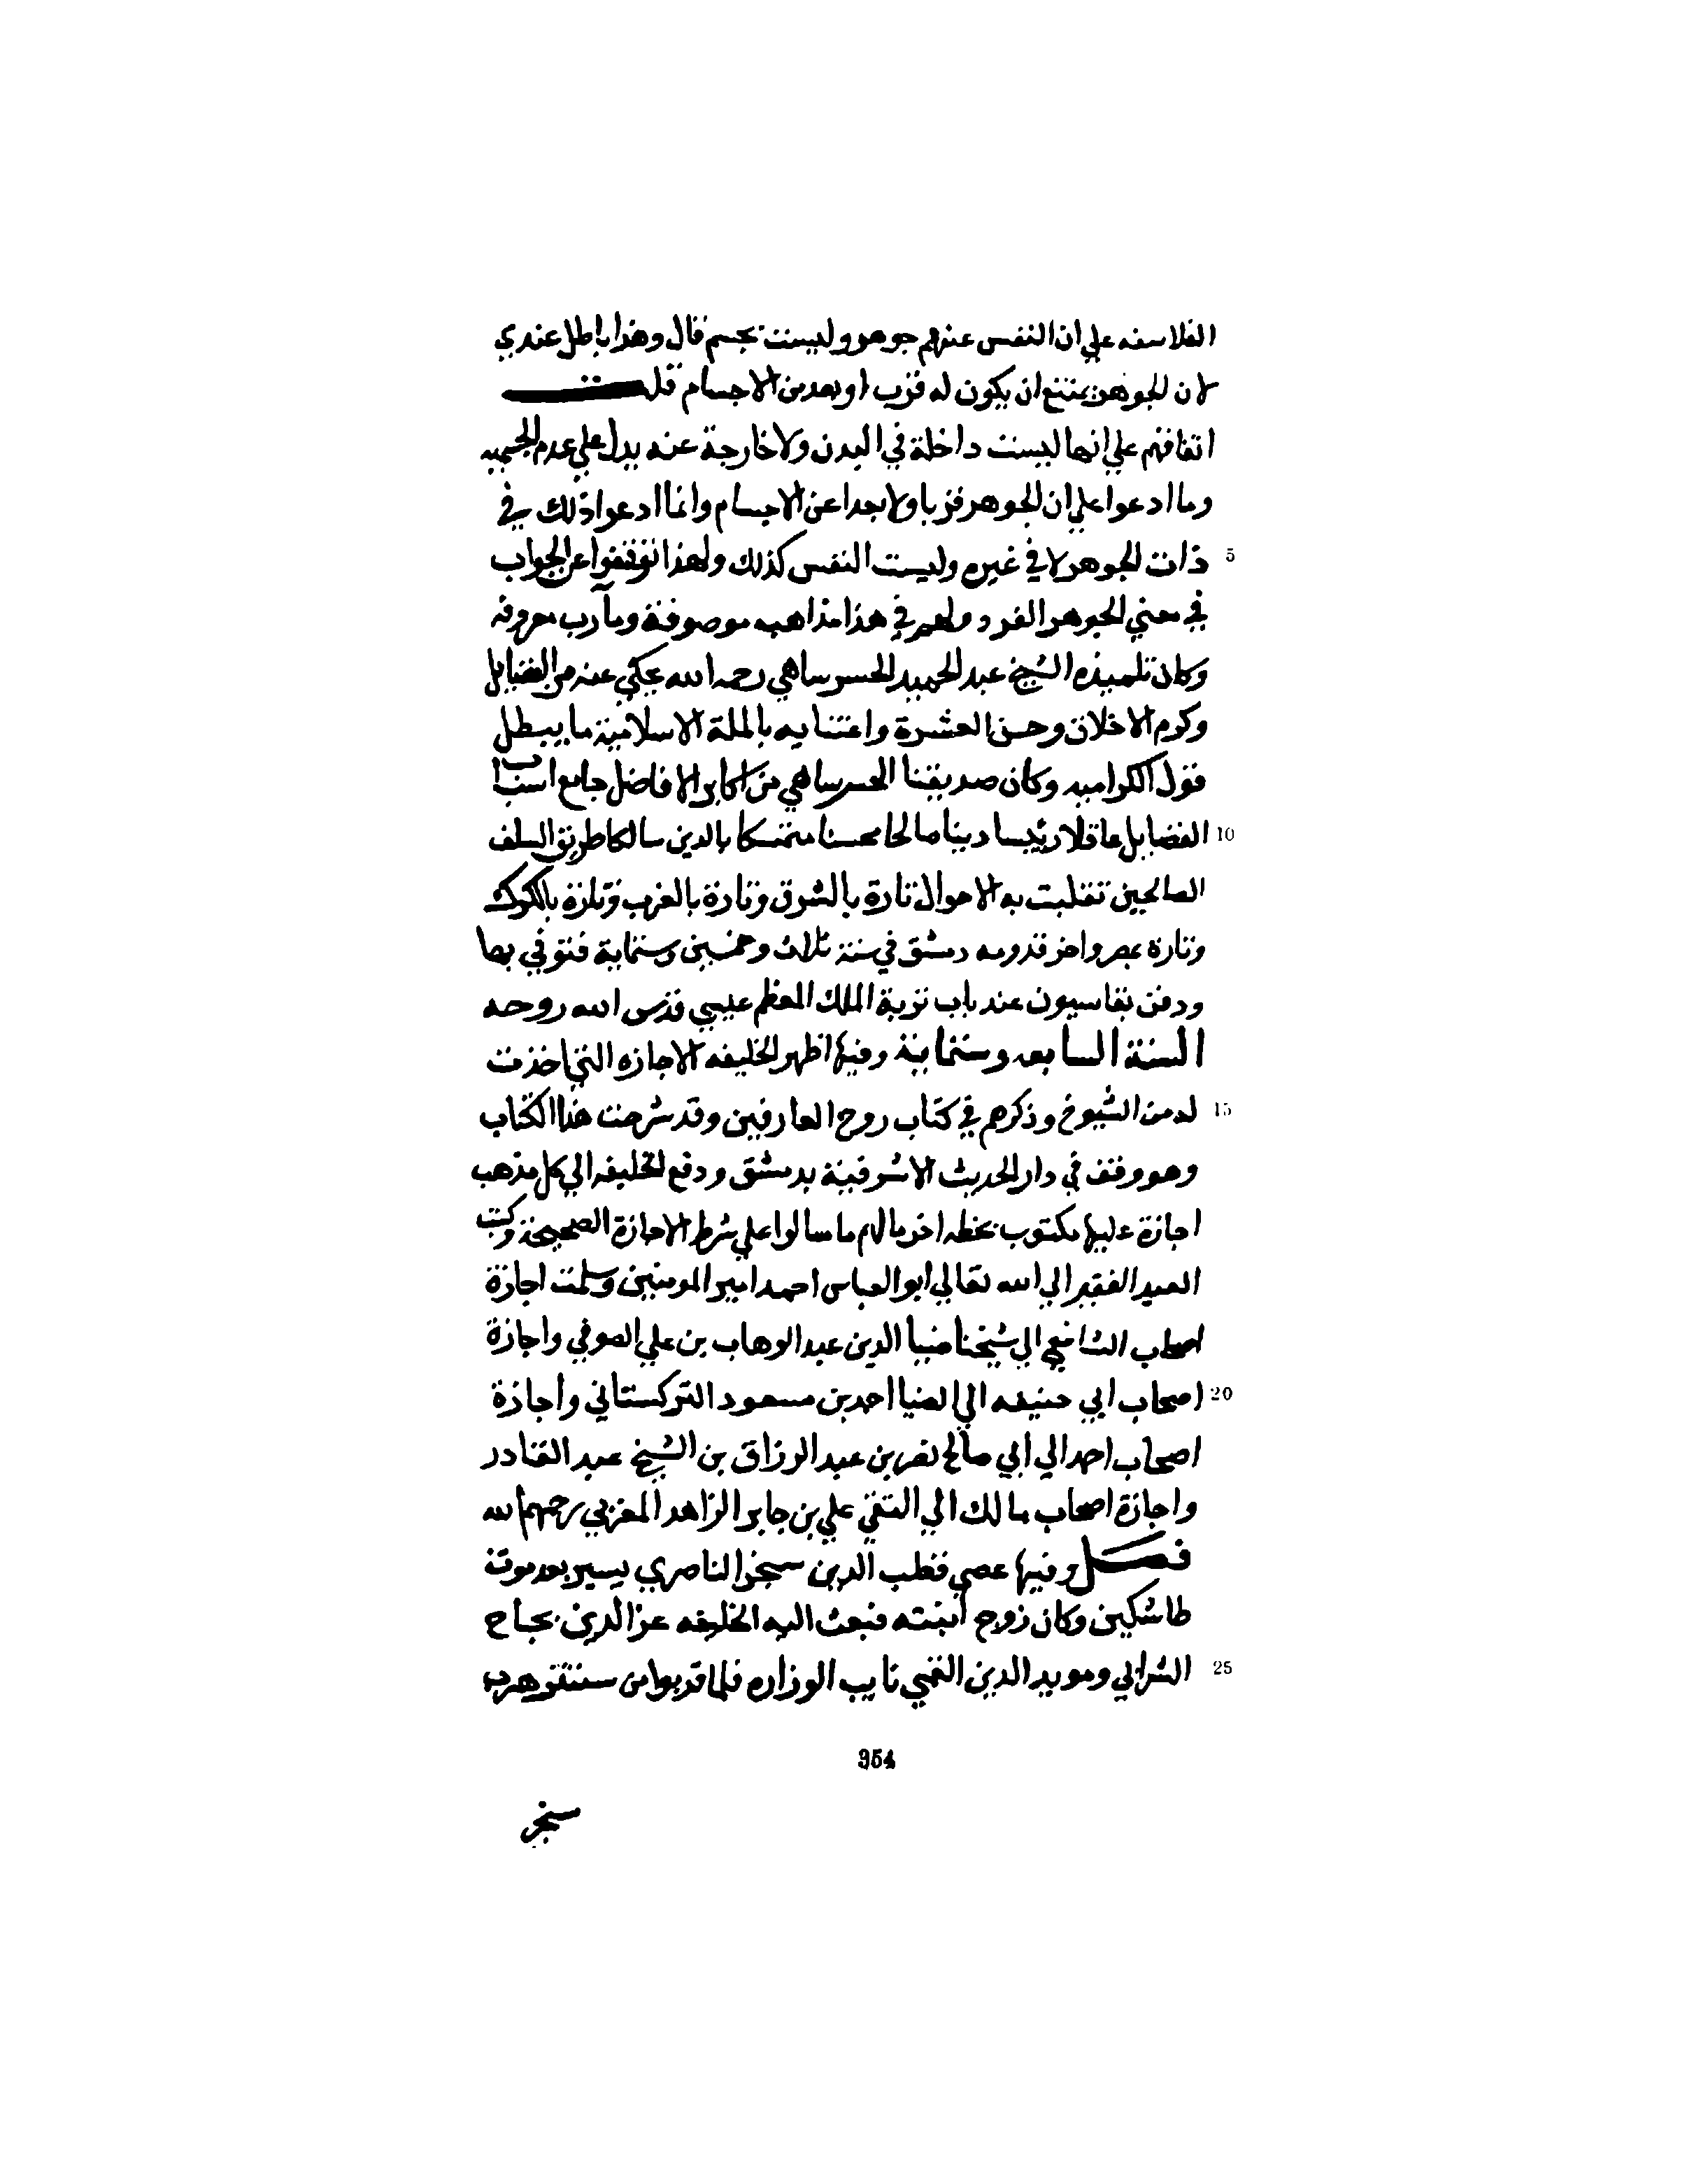 الفلاسفه علي ان النفس عندهم جوهر وليست بجسم قال وهذا باطل عندي
لان الجوهر يمتنع ان يكون له قرب او بعد من الاجسام قلت
اتفاقهم علي انها ليست داخلة في البدن ولا خارجة عنه يدل علي عدم الجسميه
وما ادعوا علي ان الجوهر قربا ولا بعدا عن الاجسام وانما ادعوا ذلك في
5 ذات الجوهر لا في غيره وليست النفس كذلك ولهذا توقفوا عن الجواب
في معني الجوهر الفرد ولهم في هذا مذاهب موصوفة ومآرب معروفه
وكان تلميذه الشيخ عبد الحميد الخسرساهي رحمه الله يحكي عنه من الفضايل
وكرم الاخلاق وحسن العشرة واعتنايه بالملة الاسلامية ما يبطل
قول الكراميه وكان صديقنا الخسرساهي من اكابر الافاضل جامع اسباب
10 الفضايل عاقلا رئيسا دينا صالحا محسنا متمسكا بالدين سالكا طريق السلف
الصالحين تقلبت به الاحوال تارة بالشرق وتارة بالغرب وتارة بالكرك
وتارة بمصر واخر قدومه دمشق في سنة ثلاث وخمسين وستماية فتوفي بها
ودفن بقاسيون عند باب تربة الملك المعظم عيسي قدس الله روحه
السنة السابعه وستماية وفيها اظهر الخليفه الاجازه التي اخذت
15 له من الشيوخ وذكرهم في كتاب روح العارفين وقد شرحت هذا الكتاب
وهو وقف في دار الحديث الاشرفية بدمشق ودفع الخليفه الي كل مذهب
اجازة عليها مكتوب بخطه اجزنا لهم ما سالوا علي شرط الاجازة الصحيحة وكتب
العبد الفقير الي الله تعالي ابو العباس احمد امير المومنين وسلمت اجازة
اصحاب الشافعي الي شيخنا ضيا الدين عبد الوهاب بن علي الصوفي واجازة
20 اصحاب ابي حنيفه الي الضيا احمد بن مسعود التركستاني واجازة
اصحاب احمد الي ابي صالح نصر بن عبد الرزاق بن الشيخ عبد القادر
واجازة اصحاب مالك الي التقي علي بن جابر الزاهد المغربي رحمهم الله
فصل وفيها عصي قطب الدين سنجر الناصري بسير بعد موت
طاشكين وكان زوج ابنته فبعث اليه الخليفه عز الدين نجاح
25 الشرابي ومويد الدين القمي نايب الوزاره فلما قربوا من ستتر هرب
354
سنجر